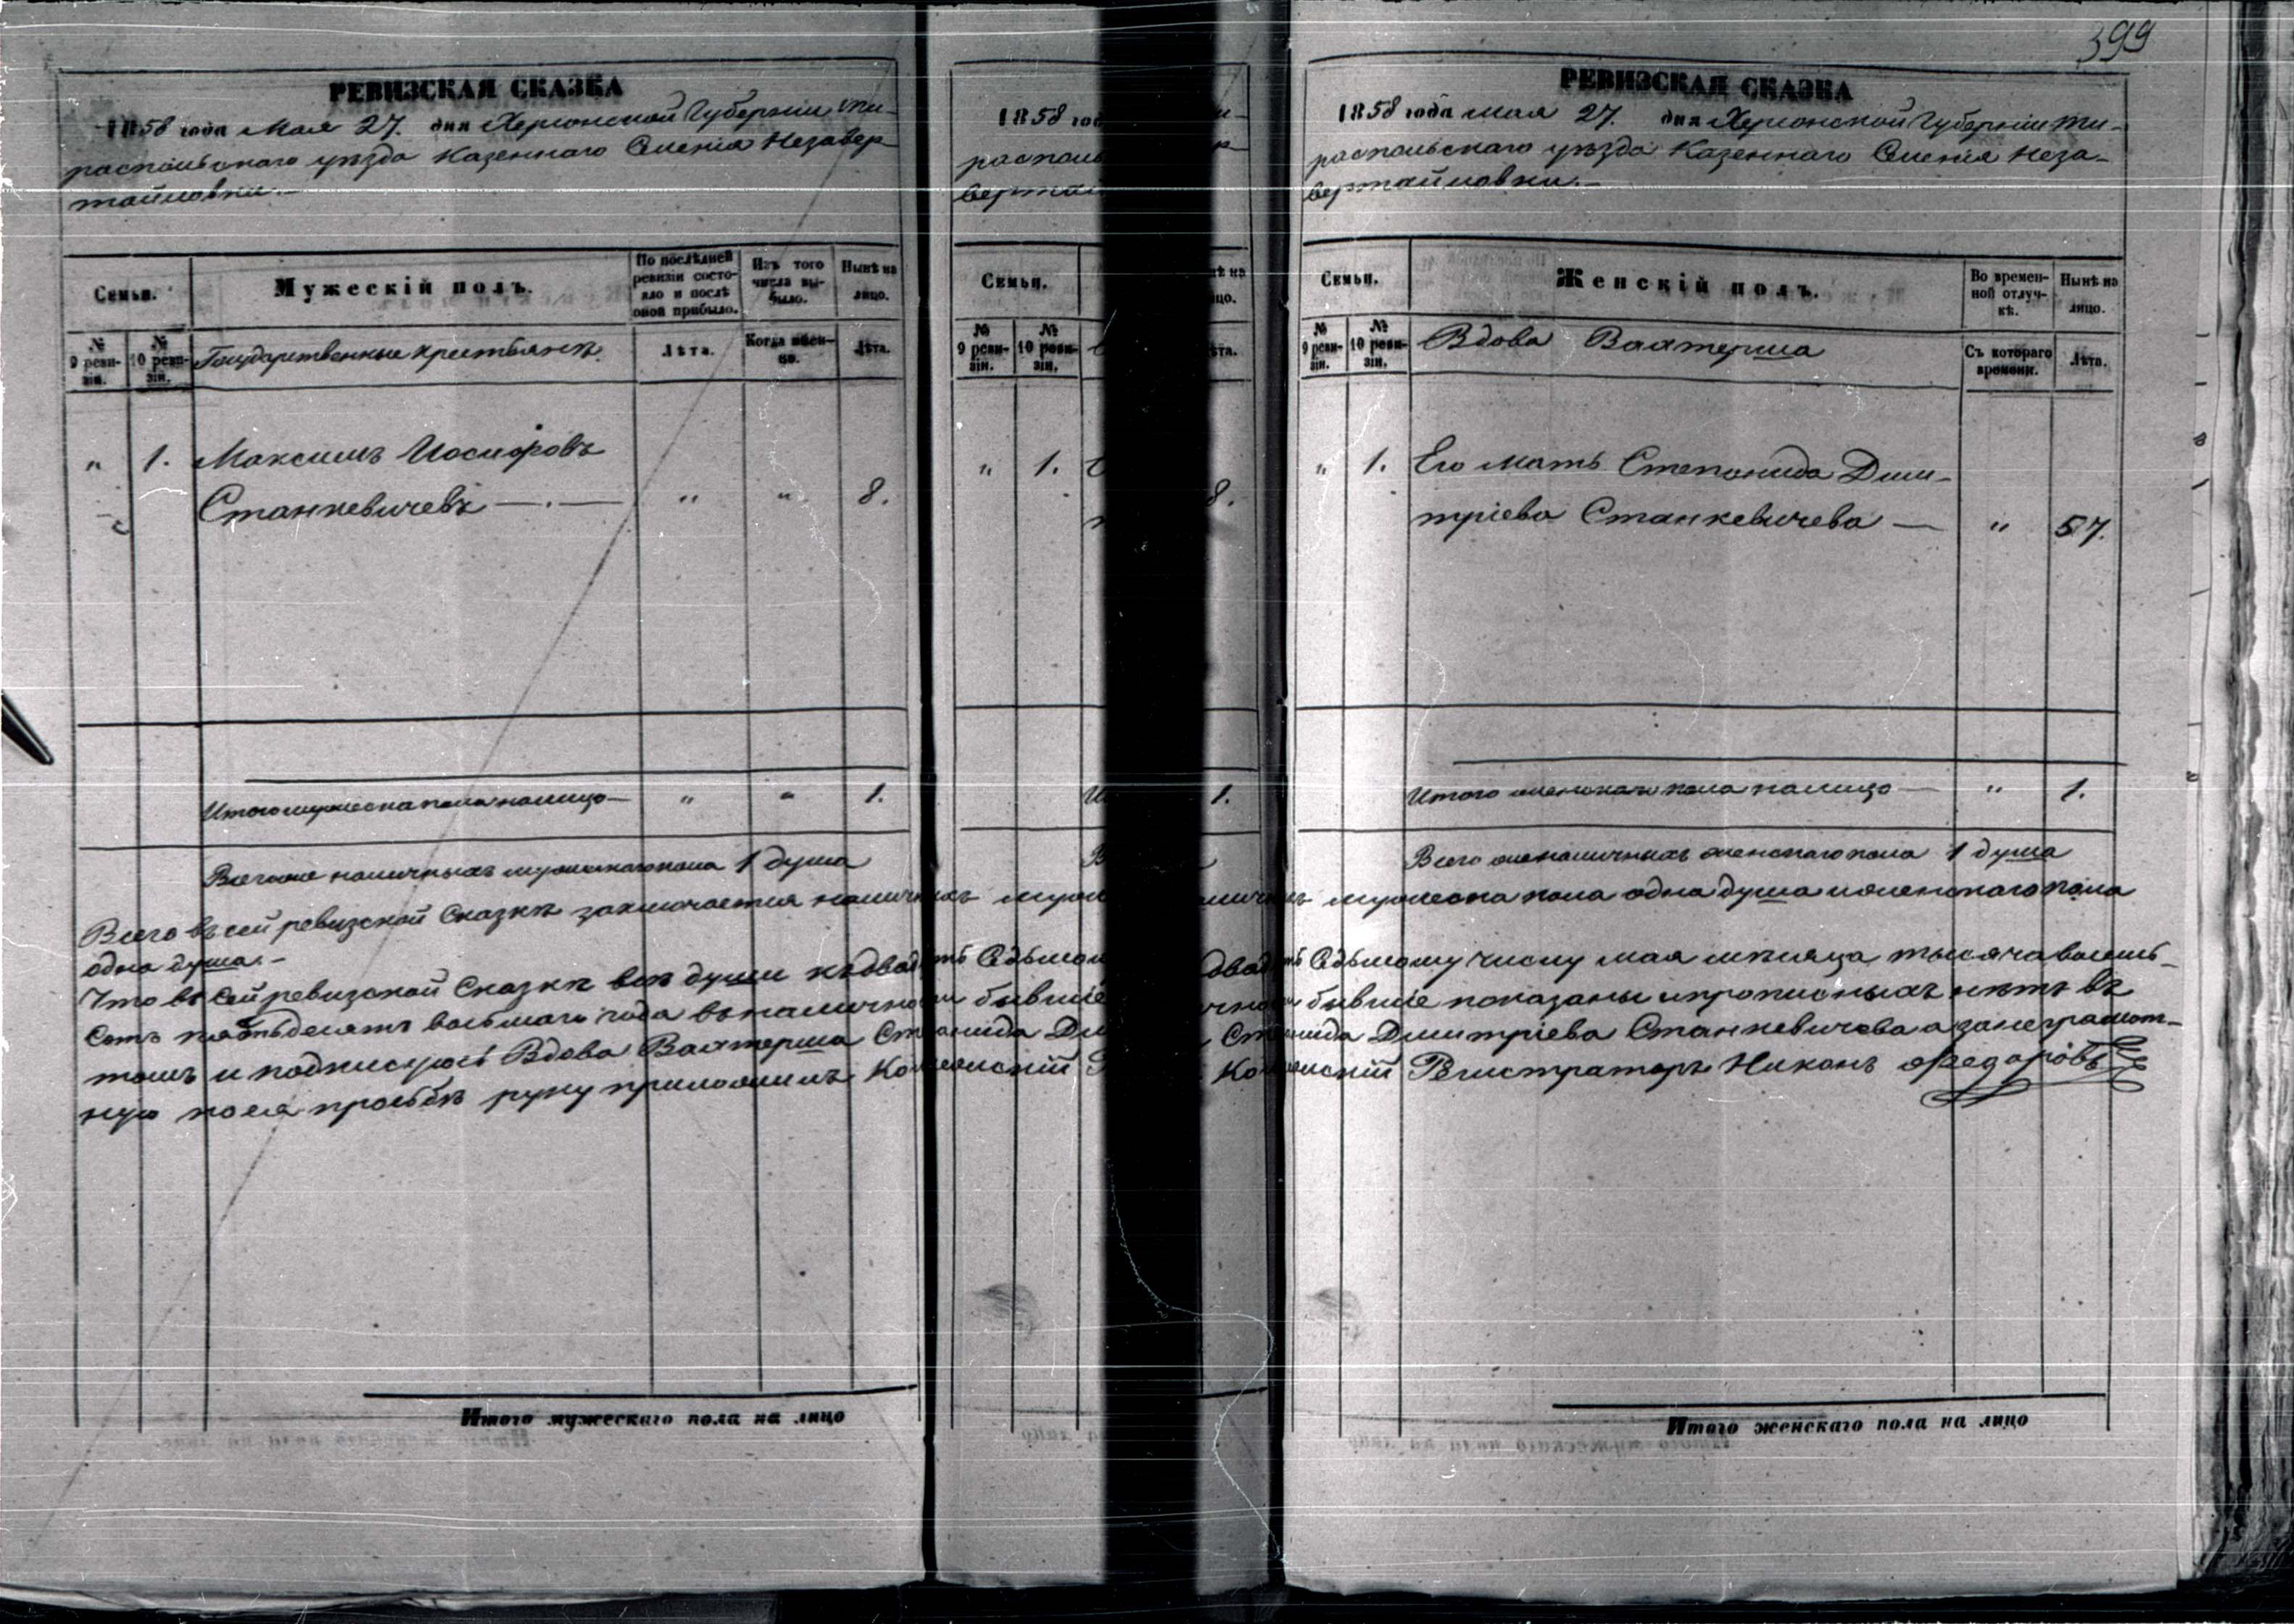 399
РЕВИЗСКАЯ СКАЗКА
1858 года Мая 27. дня Херсонской Губерніи Ти-
распольскаго уѣзда Казеннаго Селенія Незавер-
тайловки.-
Семьи.
Мужескій полъ.
По послѣдней ревизіи состо-яло и послѣ оной прибыло.
Изъ того числа вы-было.
Нынѣ на лицо.
№ 9 реви-зіи.
№ 10 реви-зіи.
Государственные крестьянъ
Лѣта.
Когда имен-но.
Лѣта.
" 1. Максимъ Иосифовъ
Станкевичевъ " " 8.
Итого мужеска пола налицо " " 1.
Всего же наличныхъ мужескаго пола 1 душа
1858 год
распольс
вертай
Семьи.
№ 9 реви-зіи.
№ 10 реви-зіи.
" 1.
8.
1.
РЕВИЗСКАЯ СКАЗКА
1858 года мая 27. дня Херсонской Губерніи Ти-
распольскаго уѣзда Казеннаго Селенія Неза-
вертайловки.-
Семьи.
Женскій полъ.
Во времен-ной отлуч-кѣ.
Нынѣ на лицо.
№ 9 реви-зіи.
№ 10 реви-зіи.
Вдова Вахтерша
Съ котораго времени.
Лѣта.
" 1. Его мать Степонида Дми-
тріева Станкевичева " 57.
Итого женскаго пола налицо " 1.
Всего же наличныхъ женскаго пола 1 душа
Всего въ сей ревизской Сказкѣ заключается наличныхъ мужеска пола одна душа и женскаго пола
одна душа.-
Что въ Сей ревизской Сказкѣ всѣ души къ двадцать Седьмому числу мая мѣсяца тысяча восемь-
сотъ пятьдесятъ восьмаго года въ наличности бывшіе показаны и прописныхъ нѣтъ въ
томъ и подписуюсь Вдова Вахтерша Степонида Дмитріева Станкевичева а за неграмот-
ную по ея просьбѣ руку приложилъ Колежскій Регистраторъ Никонъ Федоровъ
Итого мужескаго пола на лицо
Итого женскаго пола на лицо